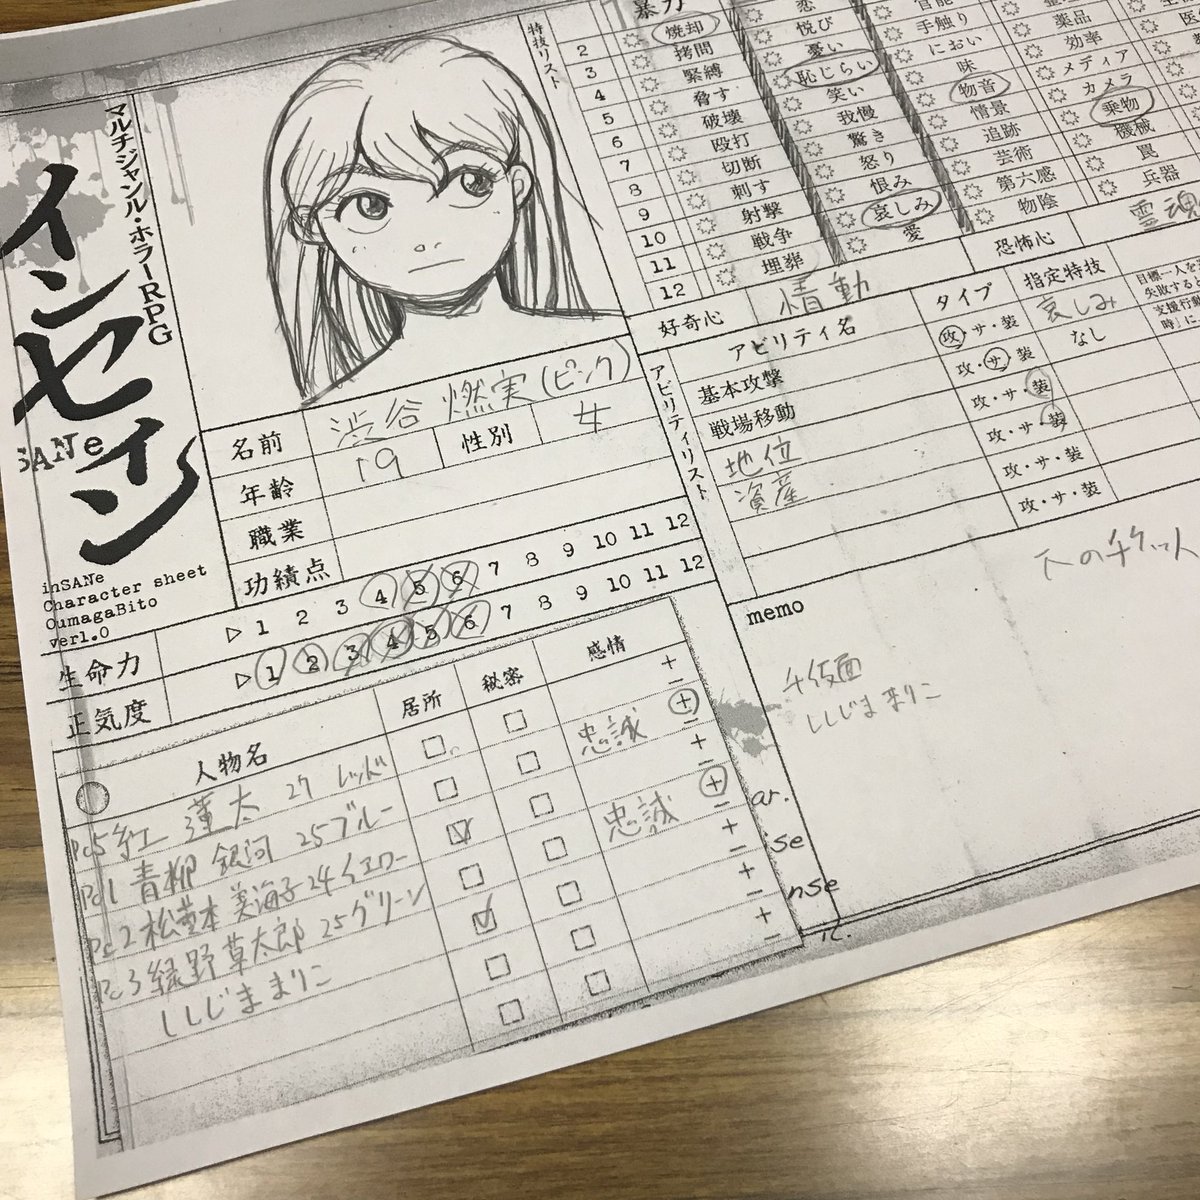 マルチジャンル・ホラーRPG
インセイン
SANe
inSANe
Character sheet
OumagaBito
ver1.0
名前 渋谷 燃実(ピンク)
年齢 19 性別 女
職業
功績点
生命力 ▷ 1 2 3 4 5 6 7 8 9 10 11 12
正気度 ▷ 1 2 3 4 5 6 7 8 9 10 11 12
人物名 居所 秘密 感情
Pc5 紅 蓮太 27 レッド + -
Pc1 青柳 銀河 25 ブルー 忠誠 + -
Pc2 松本 美海子 24 イエロー + -
Pc3 緑野 草太郎 25 グリーン 忠誠 + -
ししじま まりこ + -
+ -
特技リスト
暴力
2 焼却 恋 官能
3 拷問 悦び 手触り 薬品
4 緊縛 憂い におい 効率
5 脅す 恥じらい 味 メディア
6 破壊 笑い 物音 カメラ
7 殴打 我慢 情景 乗物
8 切断 驚き 追跡 機械
9 刺す 怒り 芸術 罠
10 射撃 恨み 第六感 兵器
11 戦争 哀しみ 物陰
12 埋葬 愛
好奇心 情動 恐怖心 霊魂
アビリティリスト
アビリティ名 タイプ 指定特技
基本攻撃 攻・サ・装 哀しみ
戦場移動 攻・サ・装 なし
地位 攻・サ・装
資産 攻・サ・装
攻・サ・装
攻・サ・装
目標一人を
失敗する
支援行動
時」に
memo
千仮面
ししじままりこ
のチケット
ar.
se
nse